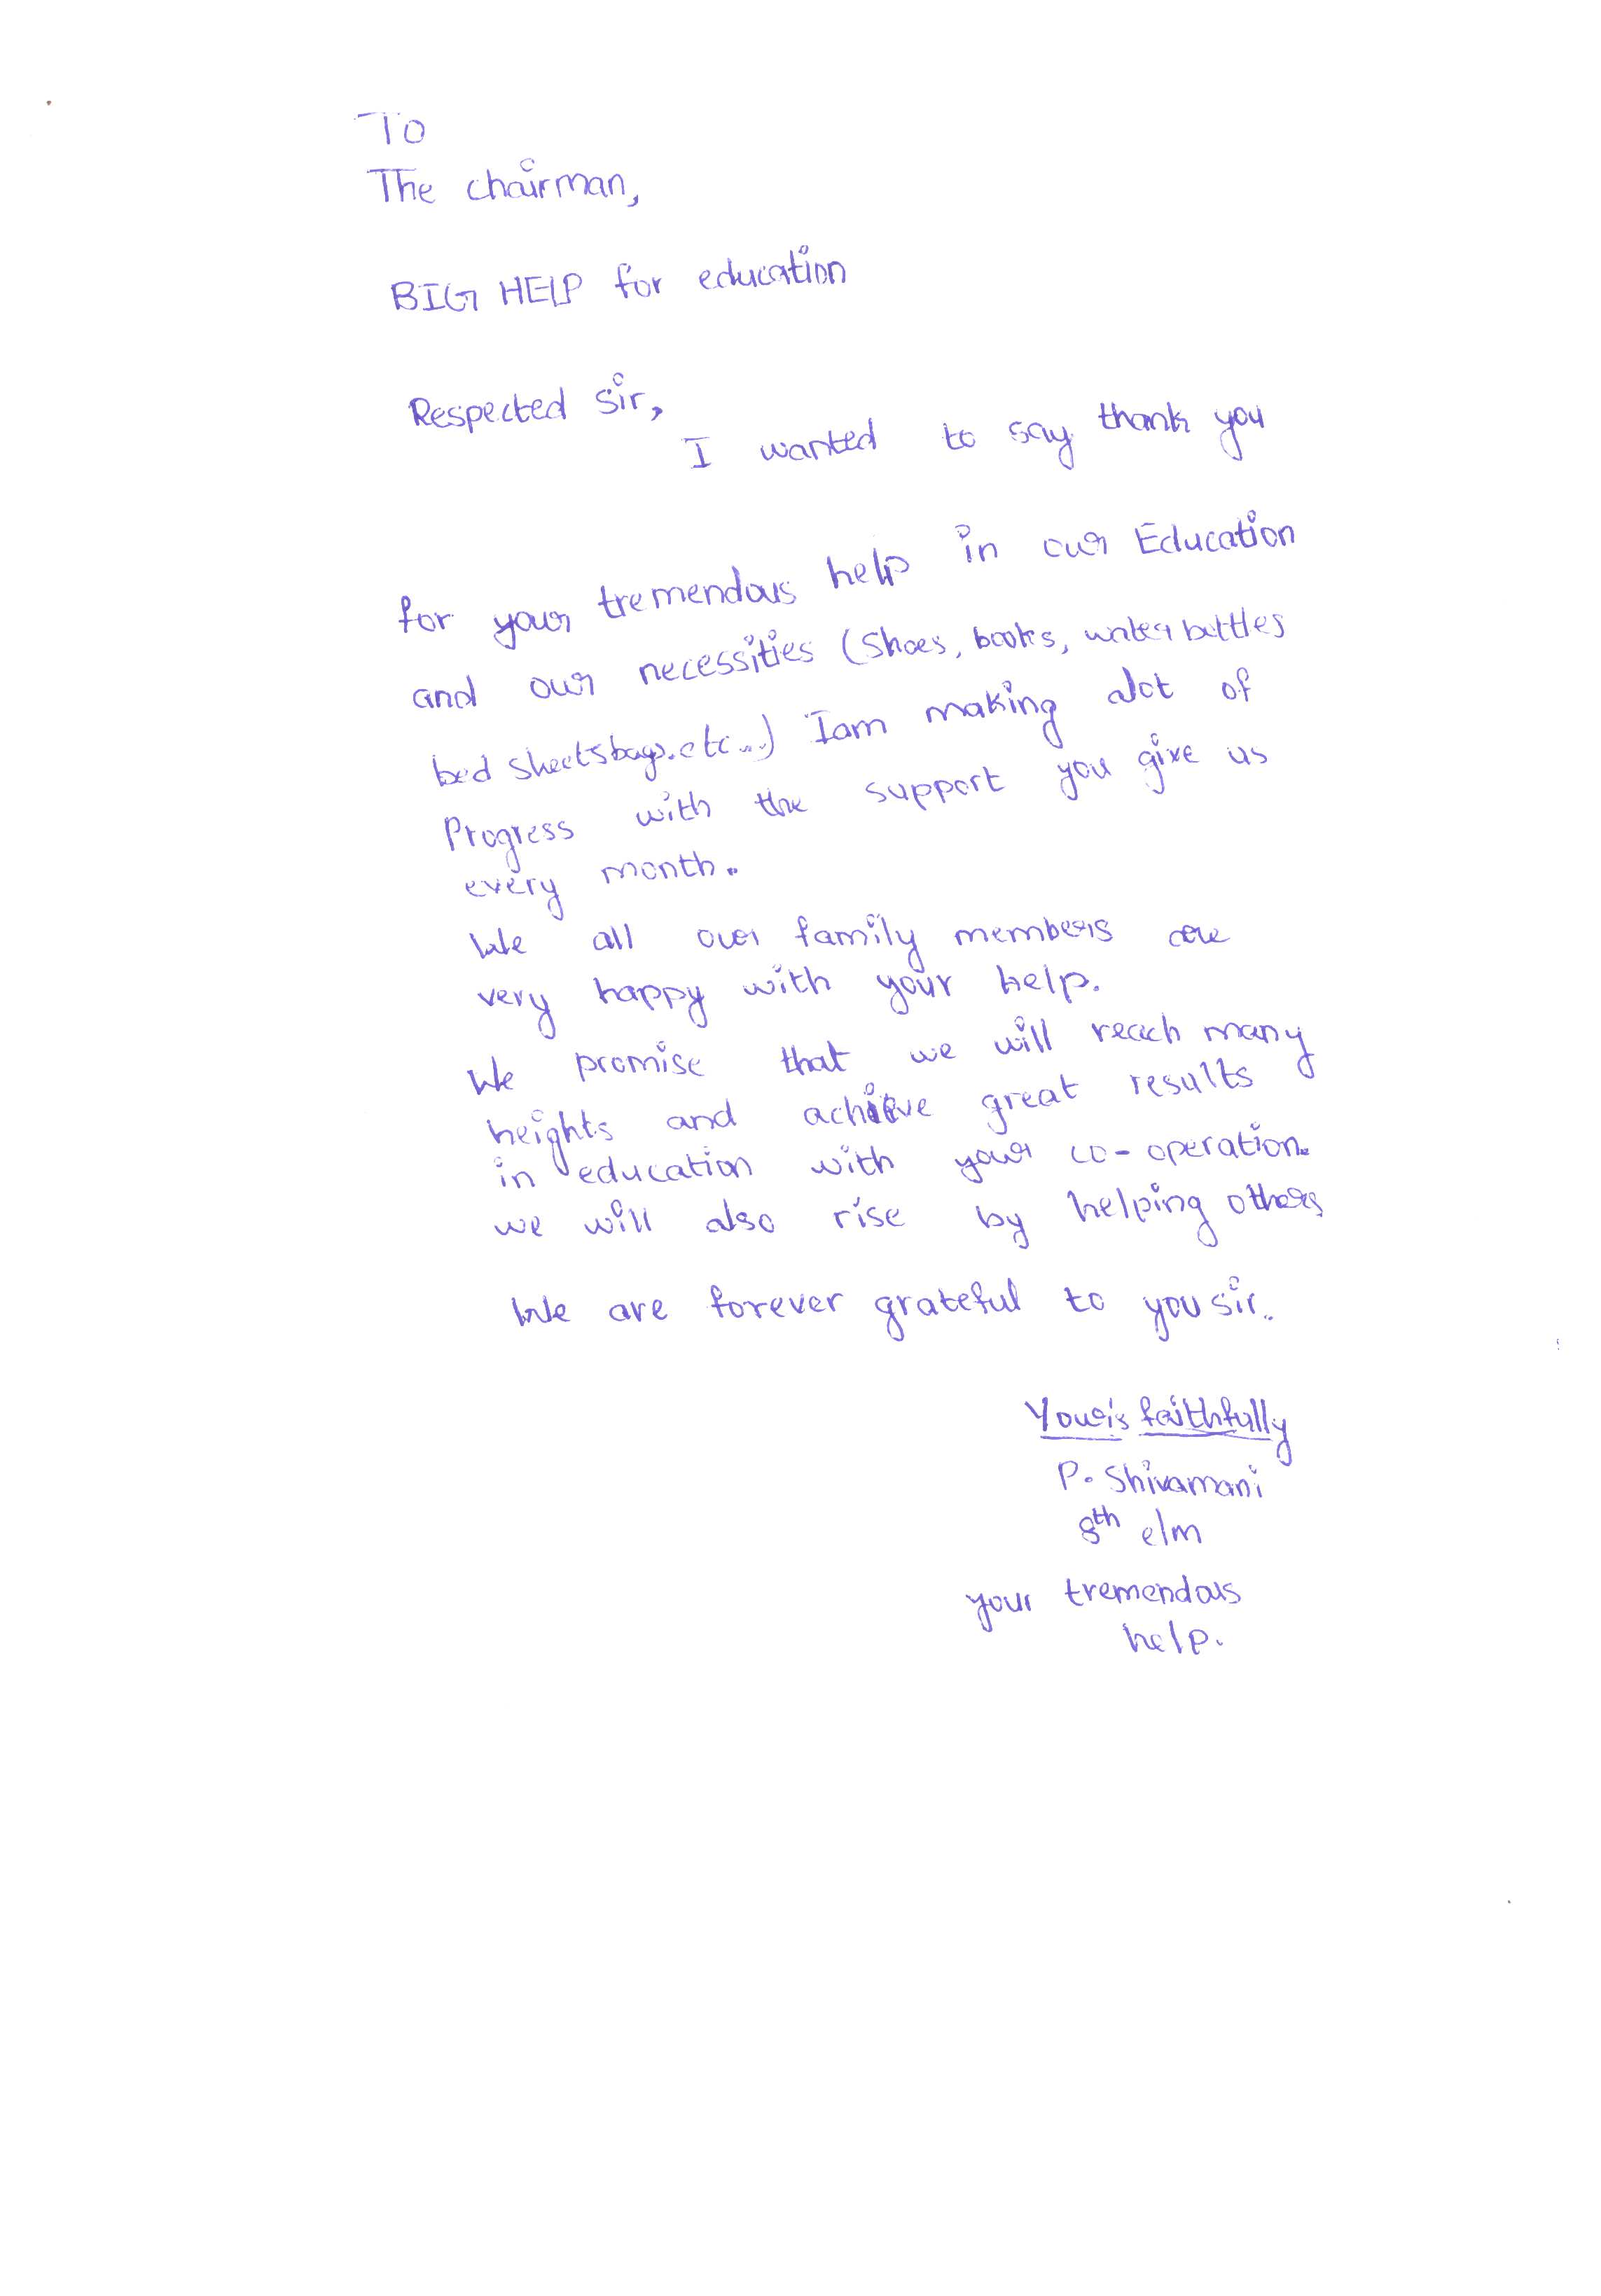 To
The chairman,
BIG HELP for education
Respected Sir,
I wanted to say thank you
for your tremendous help in our Education
and our necessities (Shoes, books, water bottles
bed sheets bags.etc...) Iam making alot of
Progress with the support you give us
every month.
We all our family members are
very happy with your help.
We promise that we will reach many
heights and achieve great results
in education with your co-operation.
we will also rise by helping others
We are forever grateful to you sir.
Your's faithfully
P. Shivamani
8th elm
your tremendous
help.